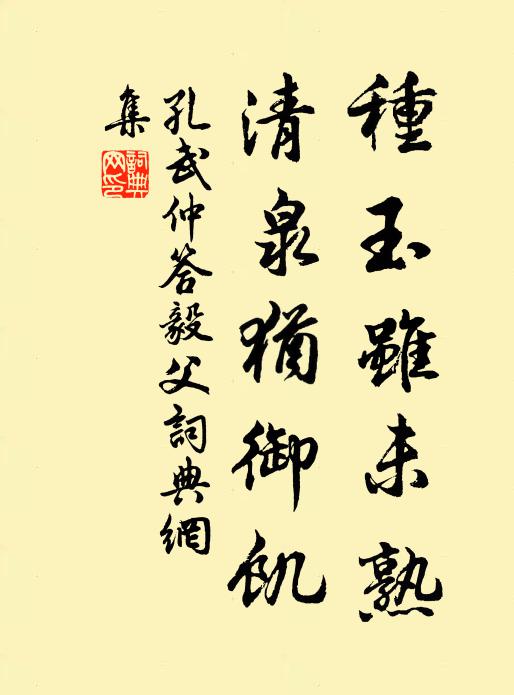 種玉雖未熟
清泉猶御飢
孔武仲答毅父詞典網
集
詞典網印